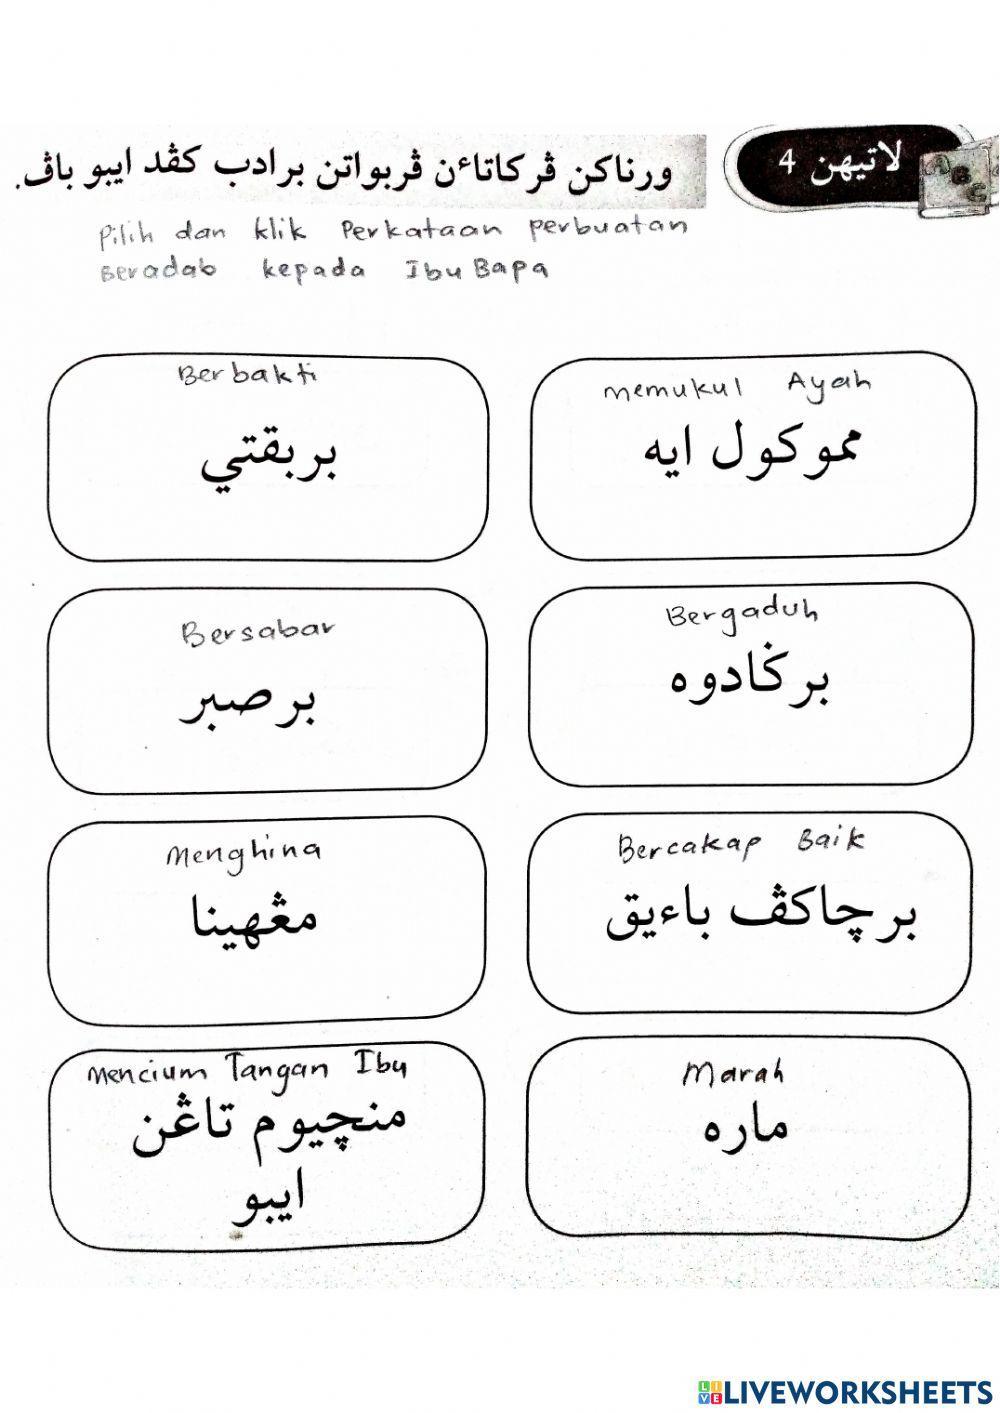 لاتيهن 4
ورناكن ڤركاتاءن ڤربواتن برادب كڤد ايبو باڤ.
Pilih dan klik Perkataan perbuatan
Beradab kepada Ibu Bapa
Berbakti
بربقتي
memukul Ayah
مموكول ايه
Bersabar
برصبر
Bergaduh
برݢادوه
Menghina
مڠهينا
Bercakap Baik
برچاكڤ باءيق
Mencium Tangan Ibu
منچيوم تاڠن
ايبو
Marah
ماره
ABC
LIVE LIVEWORKSHEETS